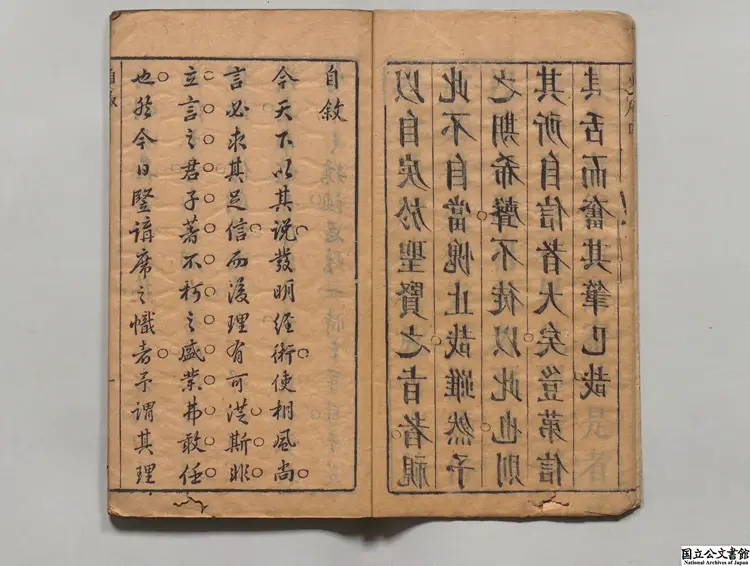 以自戾於聖賢之旨者視
此不自當愧止哉雖然予
之期希聲不徒以此也則
其所自信者大矣豈第信
其舌而奮其筆已哉
自敘
今天下以其說發明經術使相風尚
言必求其足信而後理有可從斯非
立言之君子著不朽之盛業弗敢任
也然今日豎講席之幟者予謂其理
自敘
国立公文書館
National Archives of Japan